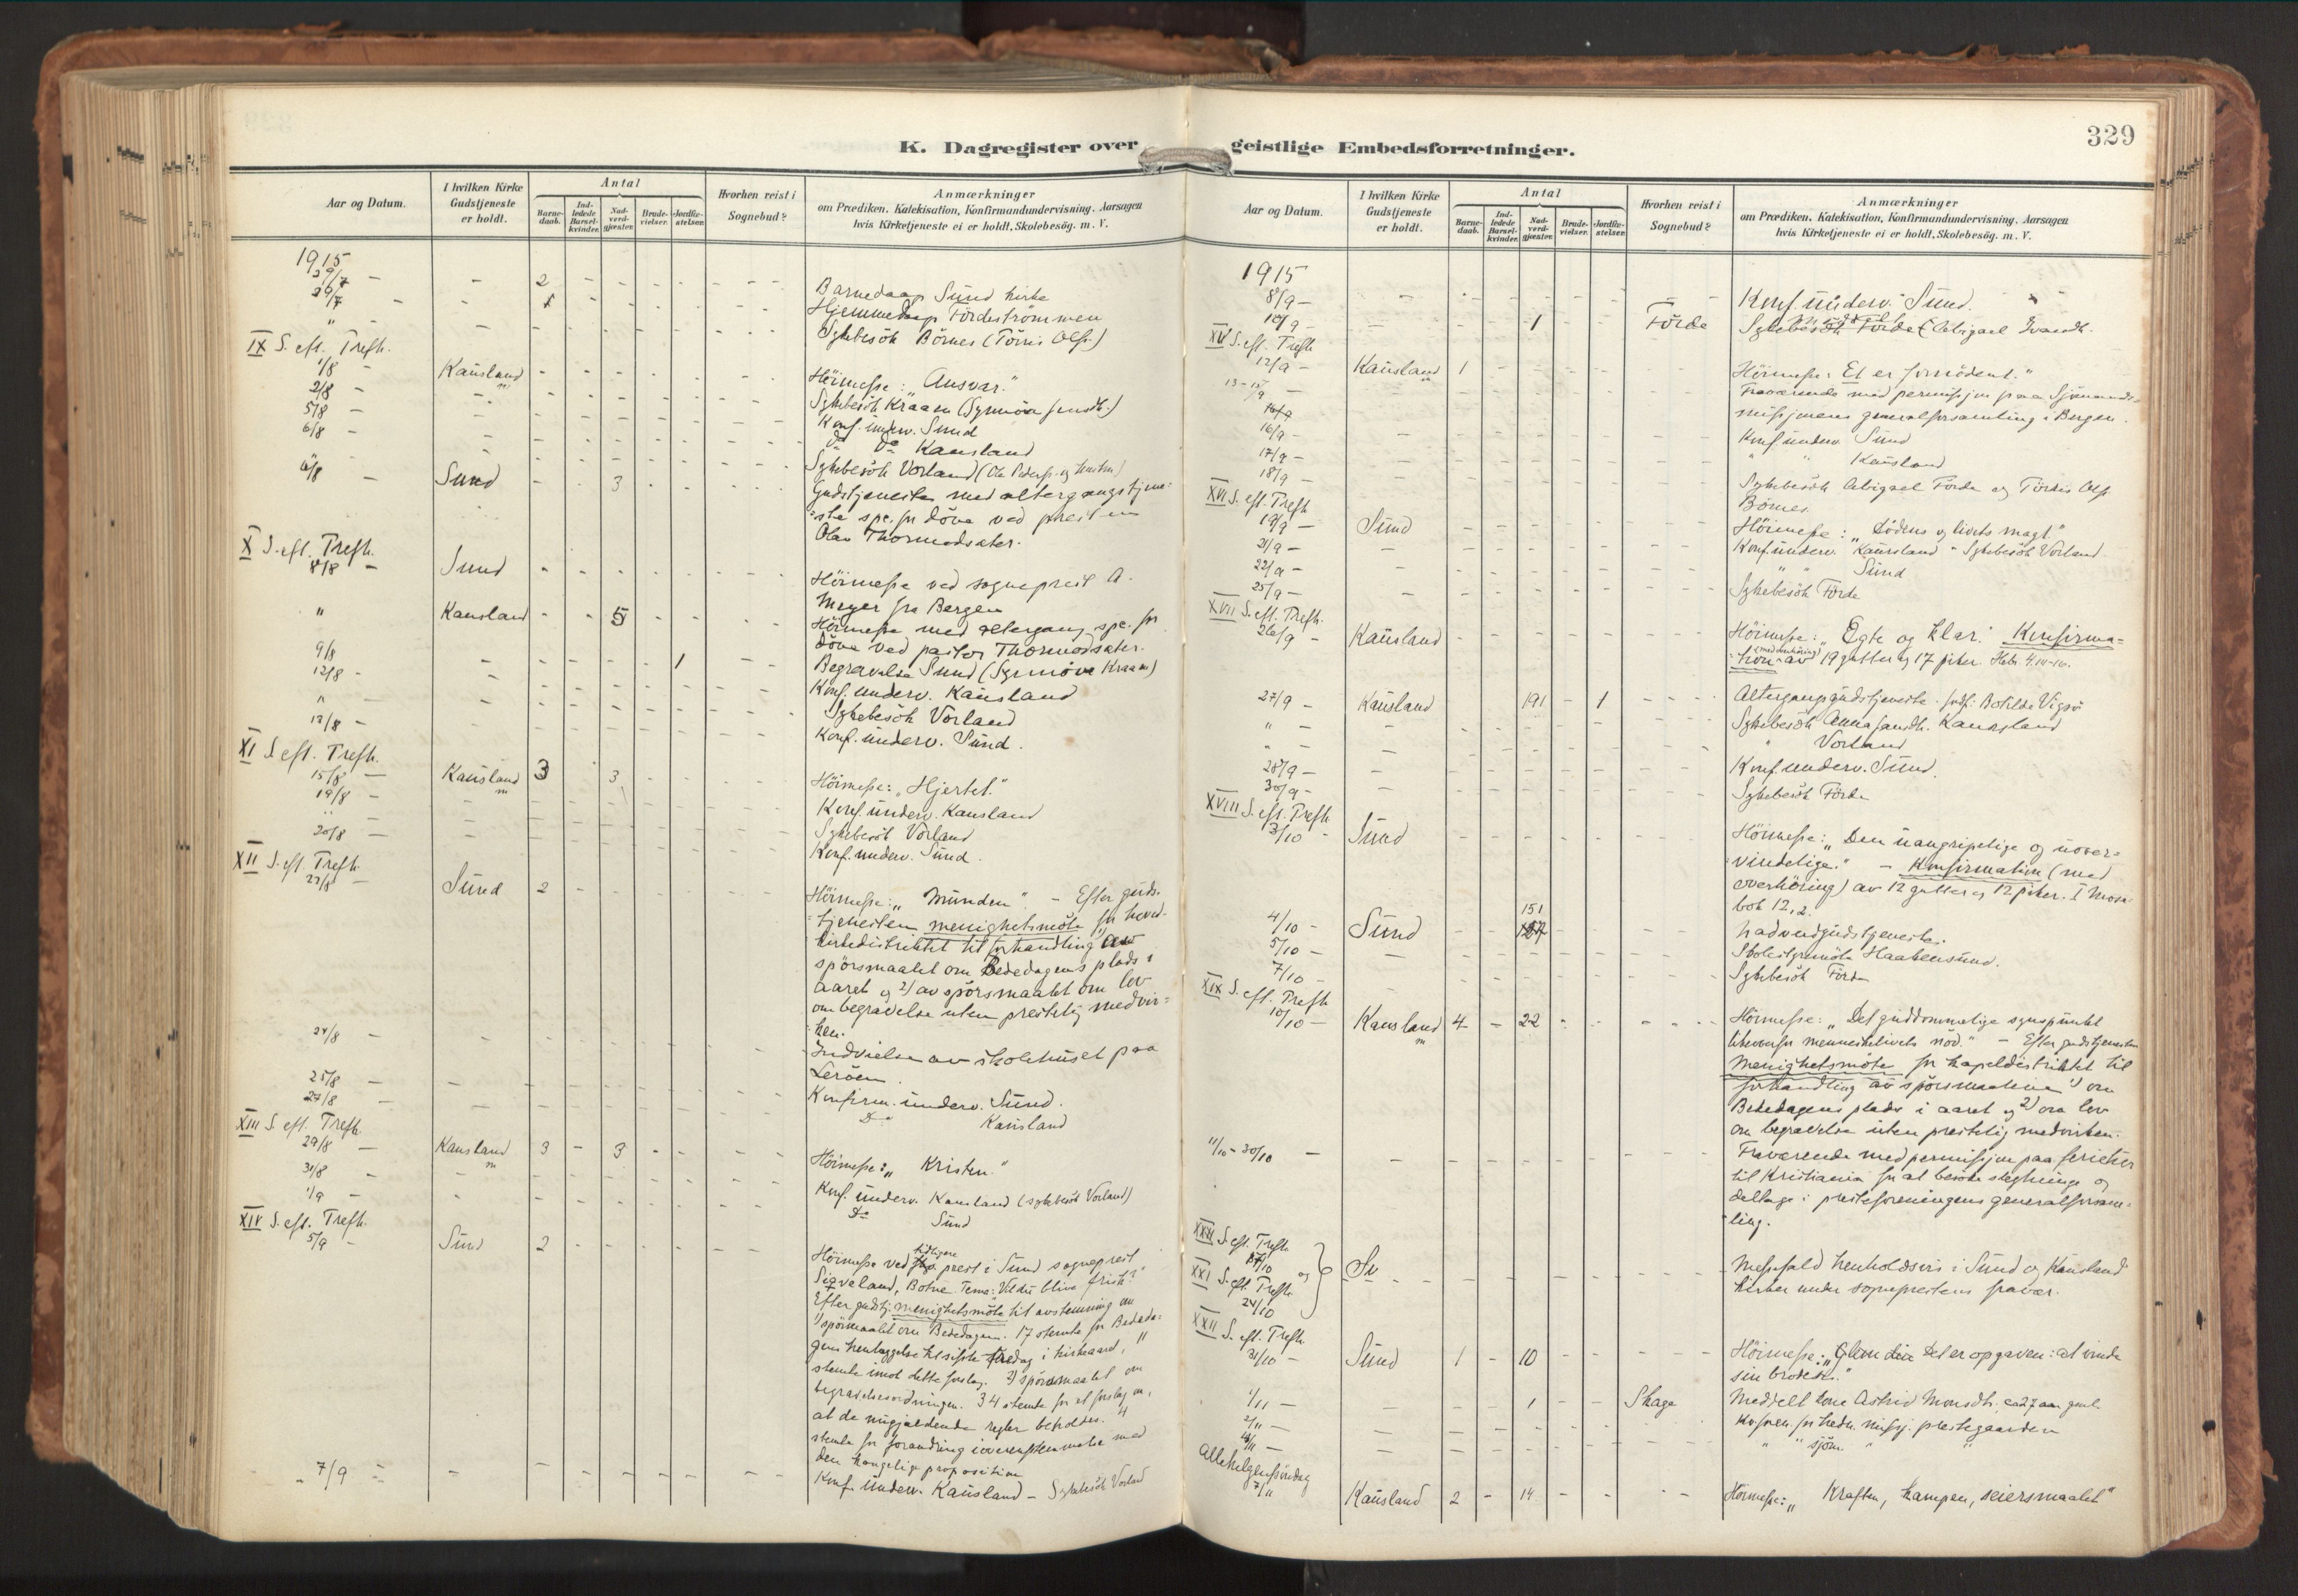 329
K. Dagregister over geistlige Embedsforretninger.
Aar og Datum.
I hvilken Kirke Gudstjeneste er holdt.
Antal
Barne-daab.
Ind-ledede Barsel-kvinder.
Nad-verd-gjæster.
Brude-vielser.
Jordfæ-stelser.
Hvorhen reist i Sognebud?
Anmærkninger
om Prædiken, Katekisation, Konfirmandundervisning, Aarsagen
hvis Kirketjeneste ei er holdt, Skolebesøg. m. V.
1915
29/7 – – 2 Barnedaap Sund kirke
1 Hjemmedaap Fördeströmmen
" Sykebesök Börnes (Olsr.)
IX S. eft. Trefh.
1/8 Kausland Höimesse: "Ansvar."
2/8 Sykebesök Kraaen
5/8 Konf. underv. Sund
6/8 Do Do Kausland
Sykebesök Vorland
Sund 3 Gudstjeneste med altergangstjene-
-ste spc. for döve ved presten
Olav Thormodsæter.
X S. eft. Trefh.
8/8 Sund Höimesse ved sogneprest A.
Meyer fra Bergen
" Kausland 5 Höimesse med altergang spc. for
döve ved pastor Thormodsæter.
9/8 1 Begravelse Sund (Synnöve Kraaen)
12/8 Konf. underv. Kausland
" Sykebesök Vorland
13/8 Konf. underv. Sund.
XI S. eft. Trefh.
15/8 Kausland 3 3 Höimesse: "Hjertet."
19/8 Konf. underv. Kausland
" Sykebesök Vorland
20/8 Konf. underv. Sund.
XII S. eft. Trefh.
22/8 Sund 2 Höimesse: "Munden". – Efter guds-
tjenesten menighetsmöte for hoved-
kirkedistriktet til forhandling av
spörsmaalet om Bededagens plads i
aaret og 2) av spörsmaalet om lov
om begravelse uten prestelig medvir-
ken.
24/8 Indvielse av skolehuset paa
Leröen.
25/8 Konfirm. underv. Sund.
27/8 Do Kausland
XIII S. eft. Trefh.
29/8 Kausland 3 – 3 Höimesse: "Kristen."
31/8 Konf. underv. Kausland (sykebesök Vorland)
1/9 Do Sund
XIV S. eft. Trefh.
5/9 Sund 2 Höimesse ved tidligere prest i Sund sogneprest
Sigveland, Botne. Tema: Vil du blive frisk?
Efter gudstj. menighetsmöte til avstemning om
1) spörsmaalet om Bededagen. 17 stemte for Bededa-
gens henlæggelse til sidste fredag i kirkeaaret, 11
stemte imot dette forslag. 2) spörsmaalet om
begravelsesordningen. 34 stemte for et forslag om,
at de nugjældende regler beholdes. 4
stemte for forandring i overensstemmelse med
den kongelige proposition
7/9 Konf. underv. Kausland – Sykebesök Vorland
Aar og Datum.
I hvilken Kirke Gudstjeneste er holdt.
Antal
Barne-daab.
Ind-ledede Barsel-kvinder.
Nad-verd-gjæster.
Brude-vielser.
Jordfæ-stelser.
Hvorhen reist i Sognebud?
Anmærkninger
om Prædiken, Katekisation, Konfirmandundervisning, Aarsagen
hvis Kirketjeneste ei er holdt, Skolebesøg. m. V.
1915
8/9 – Konf. underv. Sund.
1 Förde Sykebesök Förde (Abigael
XV S. eft. Trefh.
12/9 – Kausland 1 Höimesse: Et er fornödent."
13–15/9 Fraværende med permisjon paa Sjömands-
misjonens generalforsamling i Bergen.
16/9 – Konf. underv. Sund
17/9 – " " Kausland
18/9 – Sykebesök Abigael Förde og Olsr.
Börnes.
XVI S. eft. Trefh.
19/9 – Sund Höimesse: "Dödens og livets magt."
21/9 – Konf. underv. Kausland – Sykebesök Vorland
22/9 – " " Sund
25/9 – Sykebesök Förde
XVII S. eft. Trefh.
26/9 – Kausland Höimesse: "Egte og klar. Konfirma-
tion (med overhöring) av 19 gutter og 17 piker. Hebr. 4.14–16.
27/9 – Kausland 191 – 1 Altergangsgudstjeneste. Botilde Vigsö
" – Sykebesök Anna Kausland
" – " Vorland
28/9 – Konf. underv. Sund.
30/9 – Sykebesök Förde
XVIII S. eft. Trefh.
3/10 – Sund Höimesse: "Den uangripelige og uover-
vindelige." – Konfirmation (med
overhöring) av 12 gutter og 12 piker. I Mose-
bok 12,2.
4/10 – Sund 151 Nadverdgudstjeneste.
5/10 – Skolestyremöte Haakensund.
7/10 – Sykebesök Förde
XIX S. eft. Trefh.
10/10 – Kausland 4 – 22 Höimesse: "Det guddommelige synspunkt
likeoverfor menneskelivets nöd." – Efter gudstjenesten
Menighetsmöte for kapeldistriktet til
forhandling av spörsmaalene 1) om
Bededagens plads i aaret og 2) om lov
om begravelse uten prestelig medvirken.
11/10–30/10 – Fraværende med permisjon paa ferietur
til Kristiania for at besöke slegtninge og
deltage i presteforeningens generalforsam-
ling.
S. eft. Trefh.
17/10
og
XXI S. eft. Trefh.
24/10
Messefald henholdsvis i Sund og Kausland
kirker under sogneprestens fravær.
XXII S. eft. Trefh.
31/10 – Sund 1 – 10 Höimesse: " det er opgaven: at vinde
sin broder."
1/11 – 1 Skage Meddelt kone Astrid Monsdtr.
2/11 – Kvfören. for hedn. missj. prestegaarden
" " sjöm. " "
Allehelgensöndag
7/11 Kausland 2 – 14 Höimesse: "Kraften, kampen, seiersmaalet"